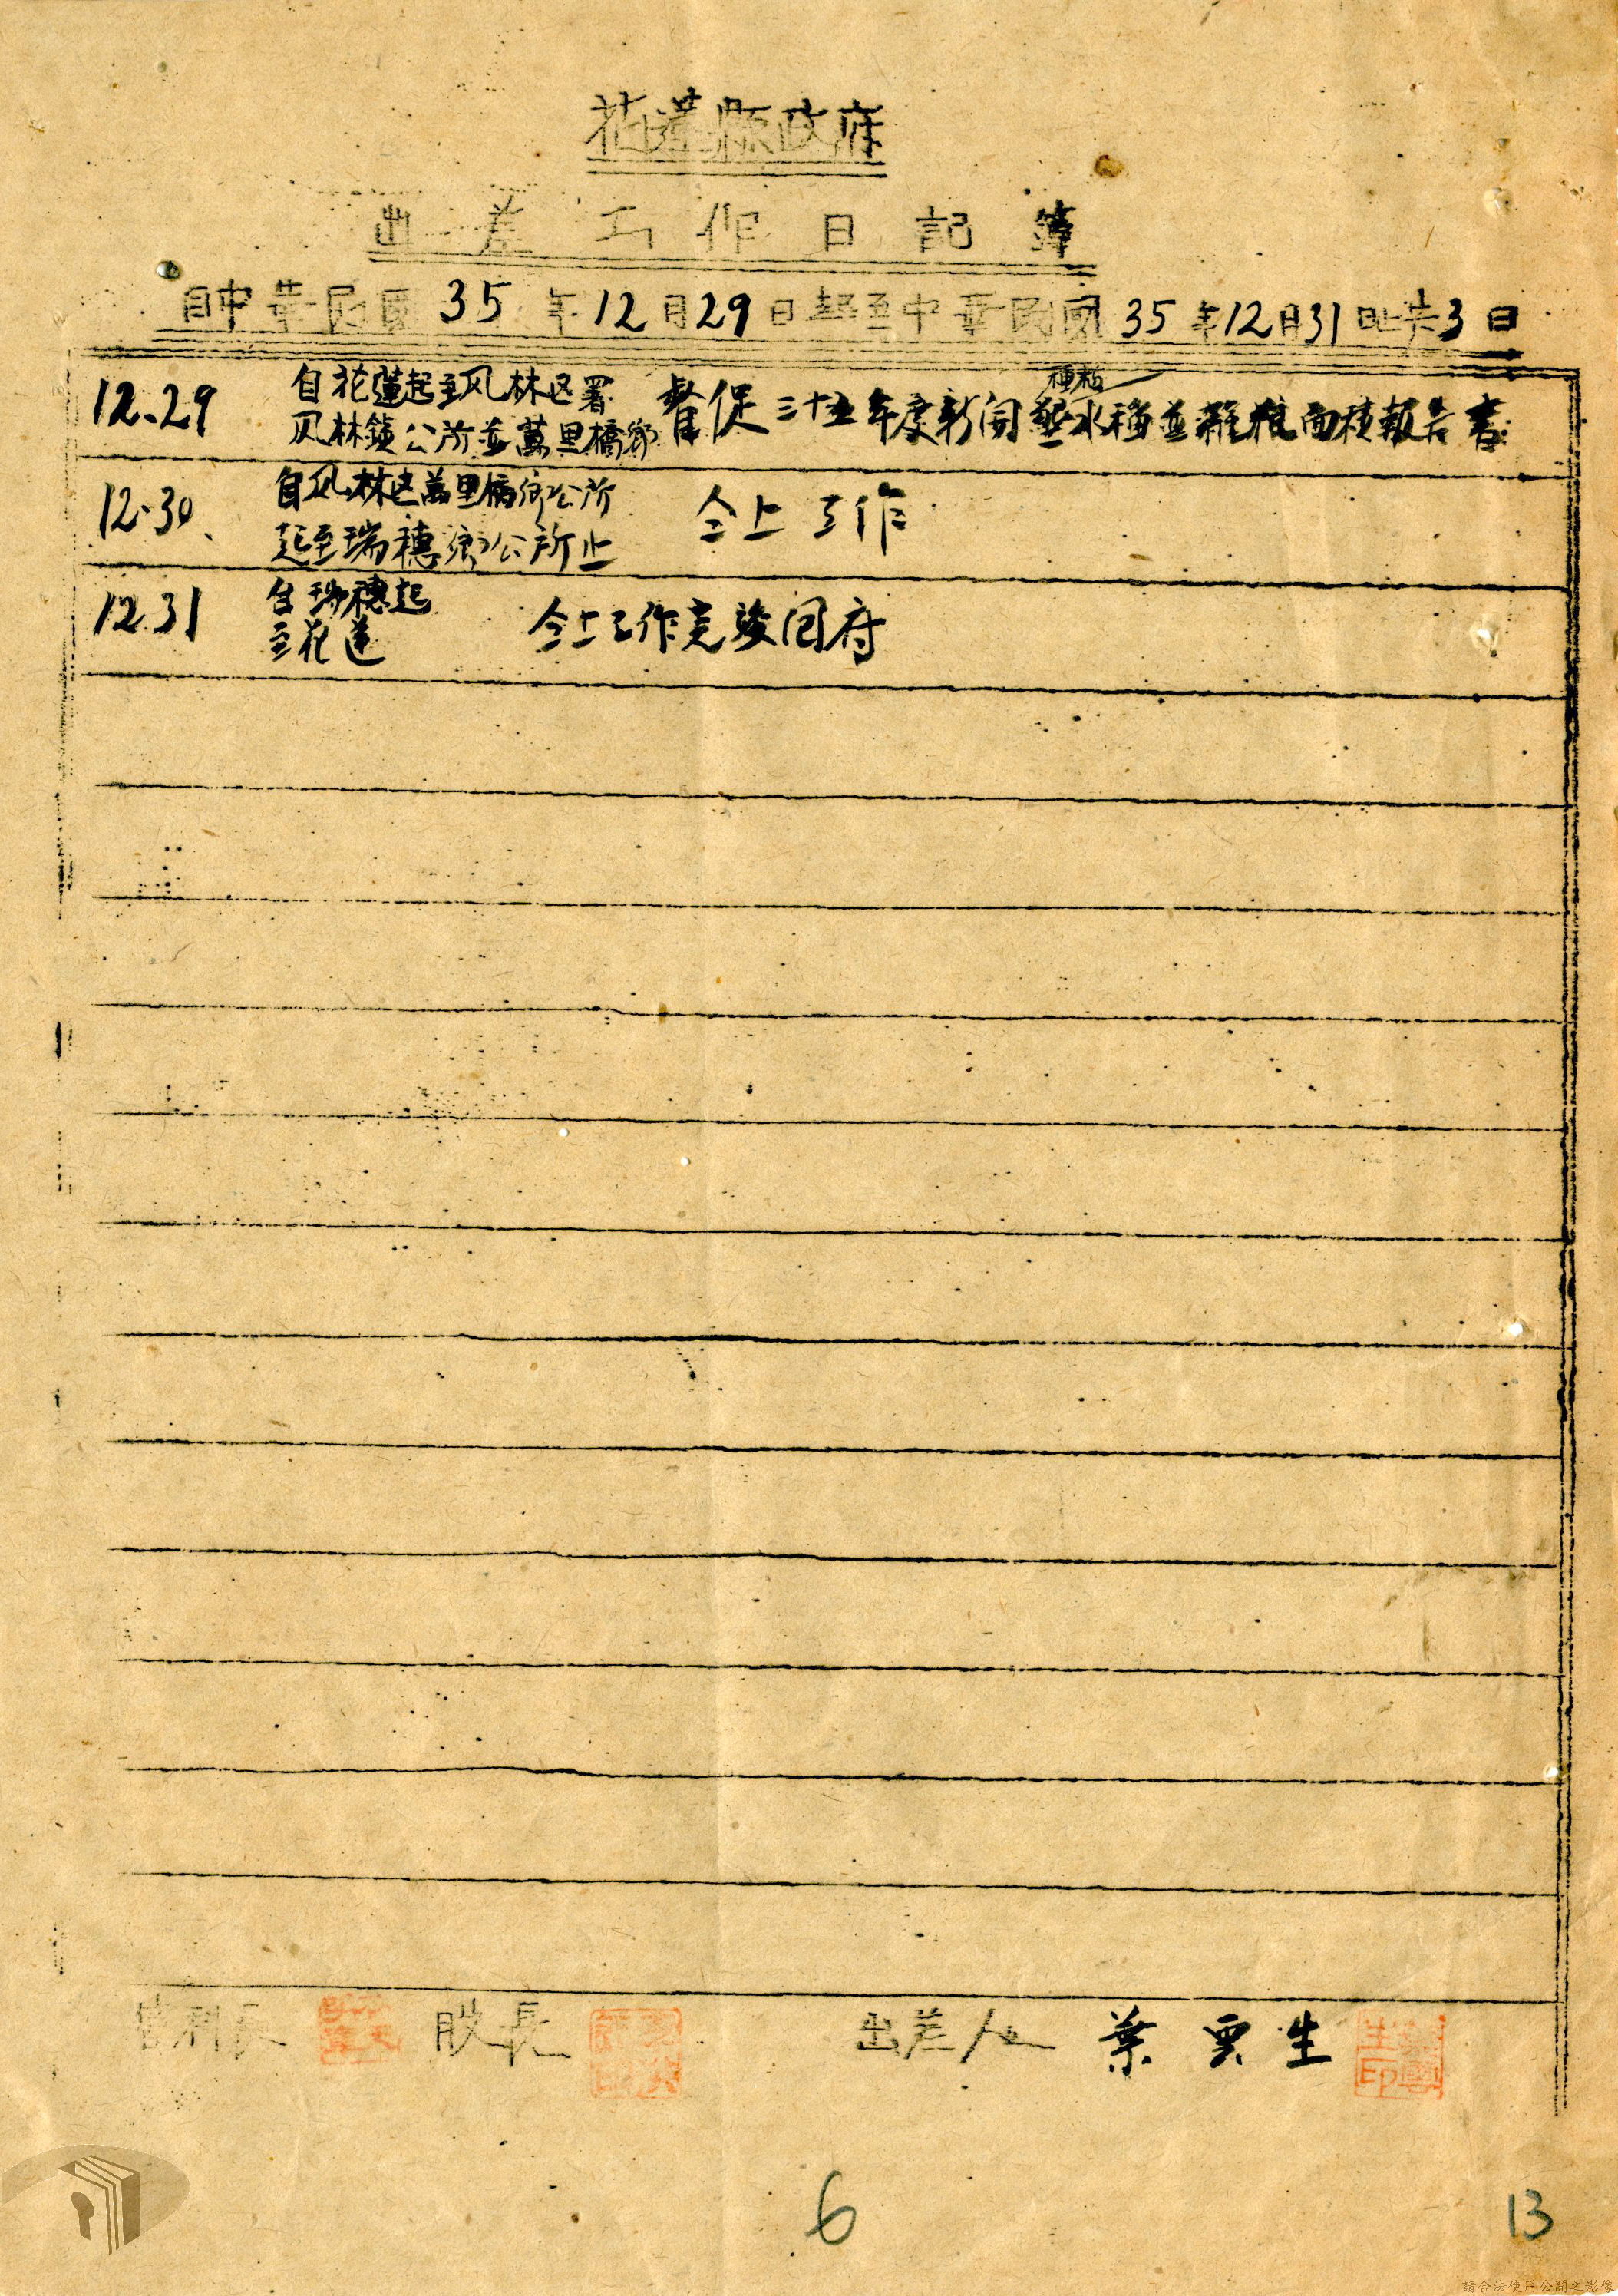 花蓮縣政府
出差工作日記簿
自中華民國35年12月29日起至中華民國35年12月31日止共3日
12.29 自花蓮起至凤林区署 凤林鎮公所並萬里橋鄉 督促三十五年度新開墾水稻並雜粮面積報告書
種植
12.30、 自凤林区萬里橋鄉公所 起至瑞穗鄉公所止 仝上工作
12.31 自瑞穗起 至花蓮 仝上工作完竣回府
股長 出差人 葉雲生
6
13
請合法使用公開之影像